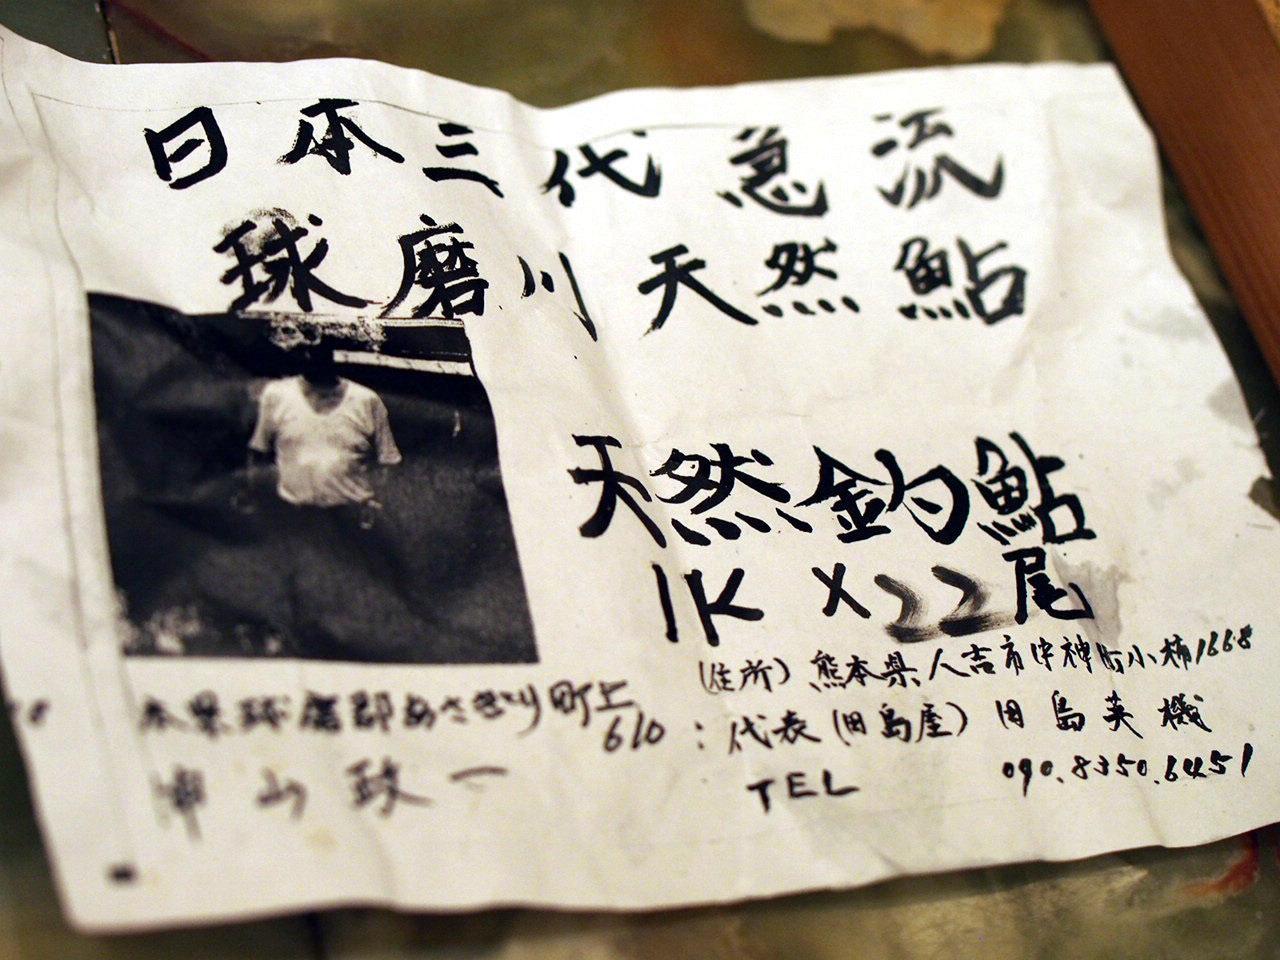 日本三代急流
球磨川天然鮎
天然釣鮎
1K×22尾
(住所) 熊本県人吉市中神町小柿1668
本県球磨郡あさぎり町上
610
:代表(田島屋) 田島英機
山政一
TEL 090.8350.6451